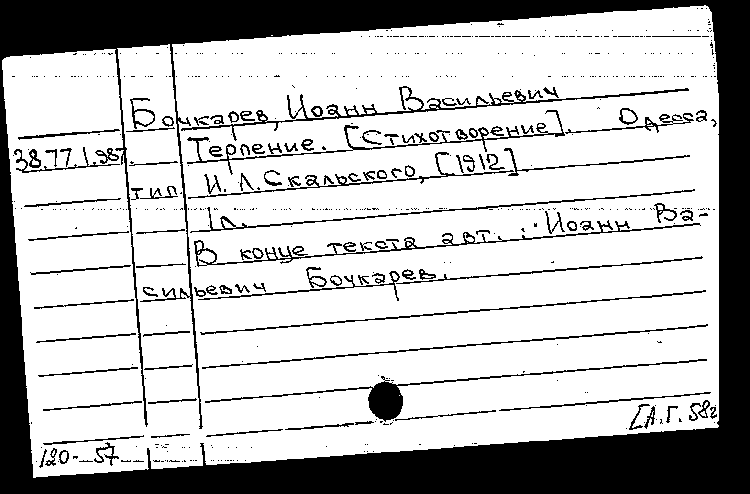 Бочкарев, Иоанн Васильевич
38.77.1.987. Терпение. [Стихотворение]. Одесса,
тип. И. Л. Скальского, [1912].
1л.
В конце текста авт.: Иоанн Ва-
сильевич Бочкарев.
[А.Г. 58г
120-57